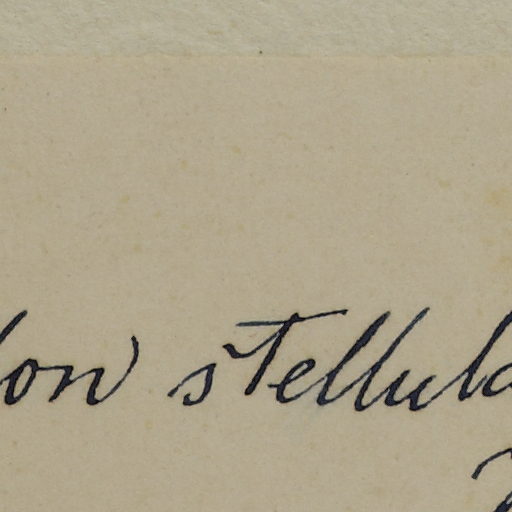 lon stellula